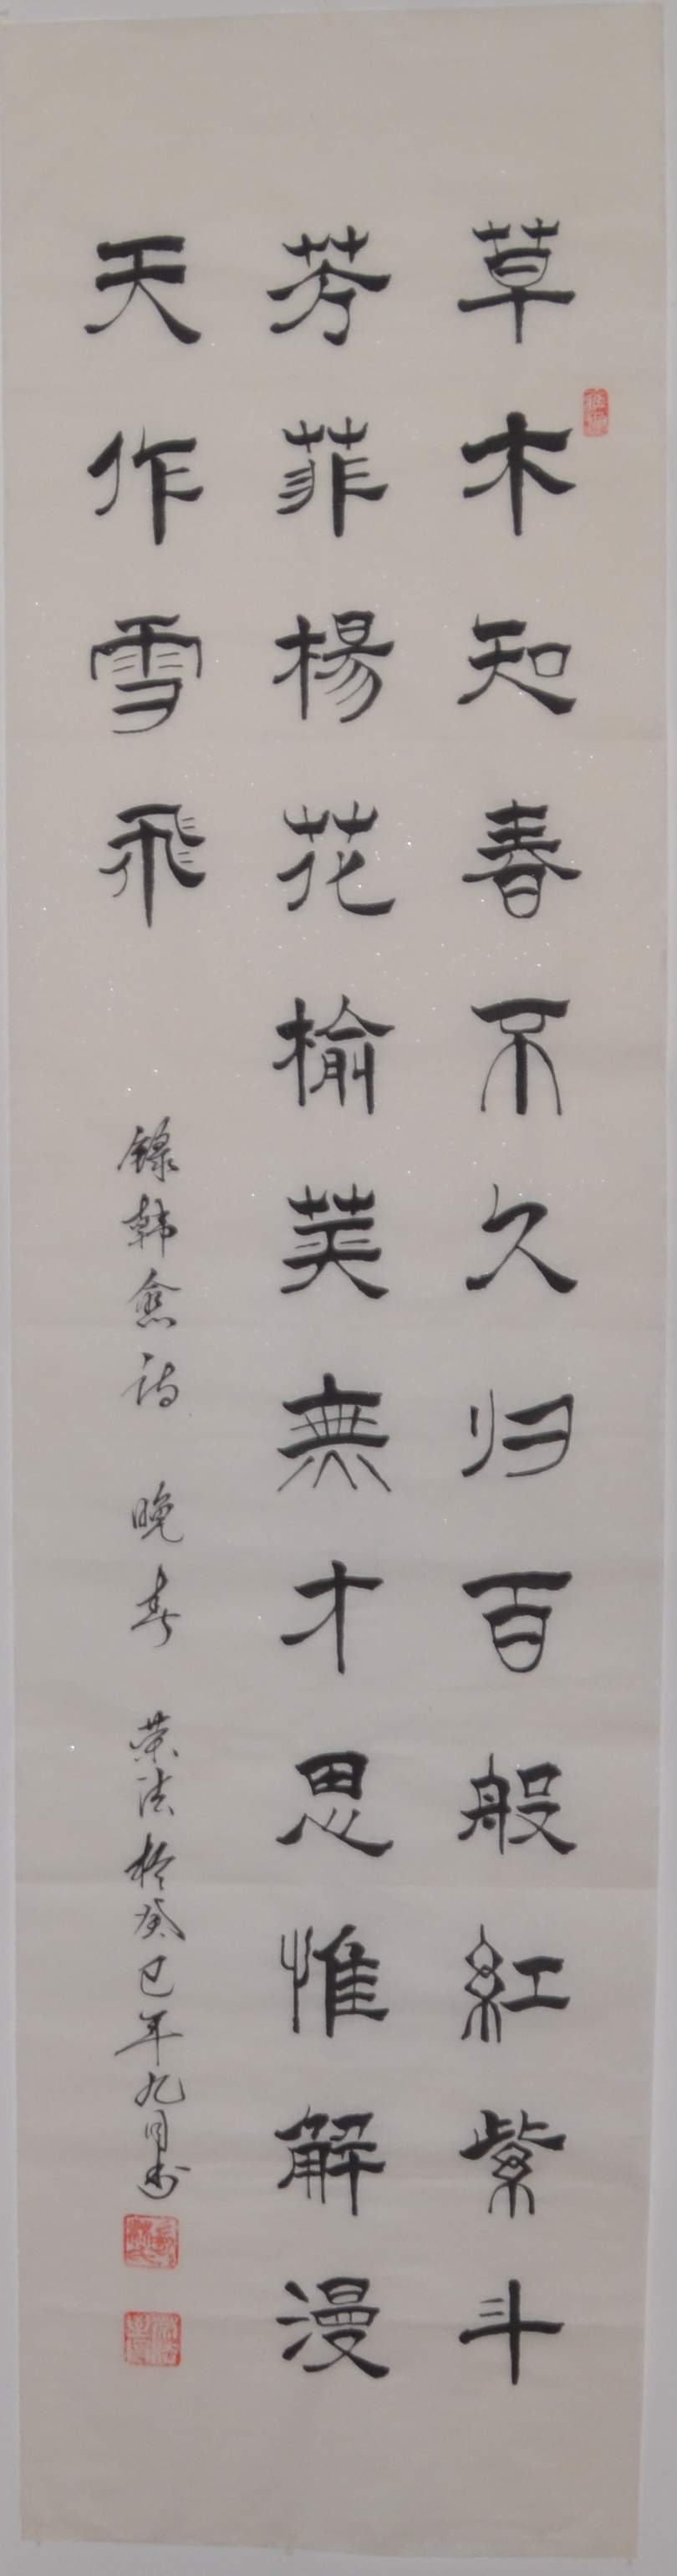 草木知春不久归百般紅紫斗
芳菲楊花榆荚無才思惟解漫
天作雪飛
録韩愈诗 晚春 荣法於癸巳年九月书